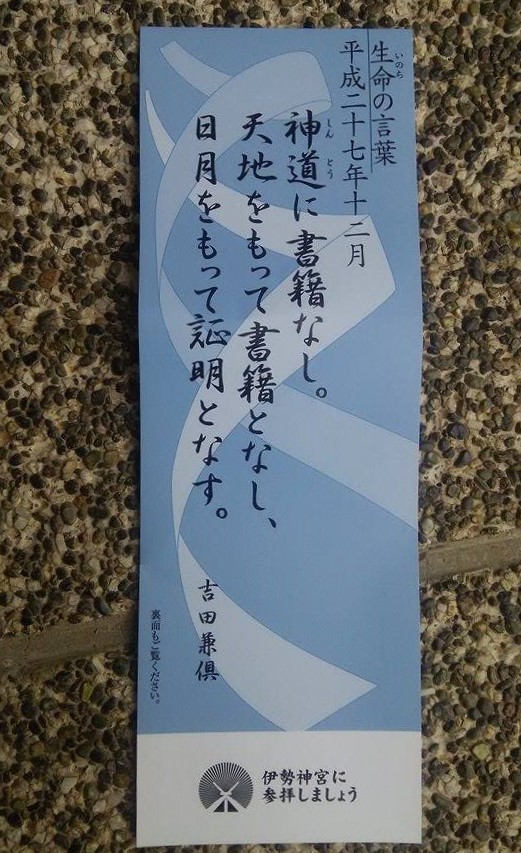 生命の言葉
いのち
平成二十七年十二月
神道に書籍なし。
しんとう
天地をもって書籍となし、
日月をもって証明となす。
吉田兼倶
裏面もご覧ください。
伊勢神宮に
参拝しましょう